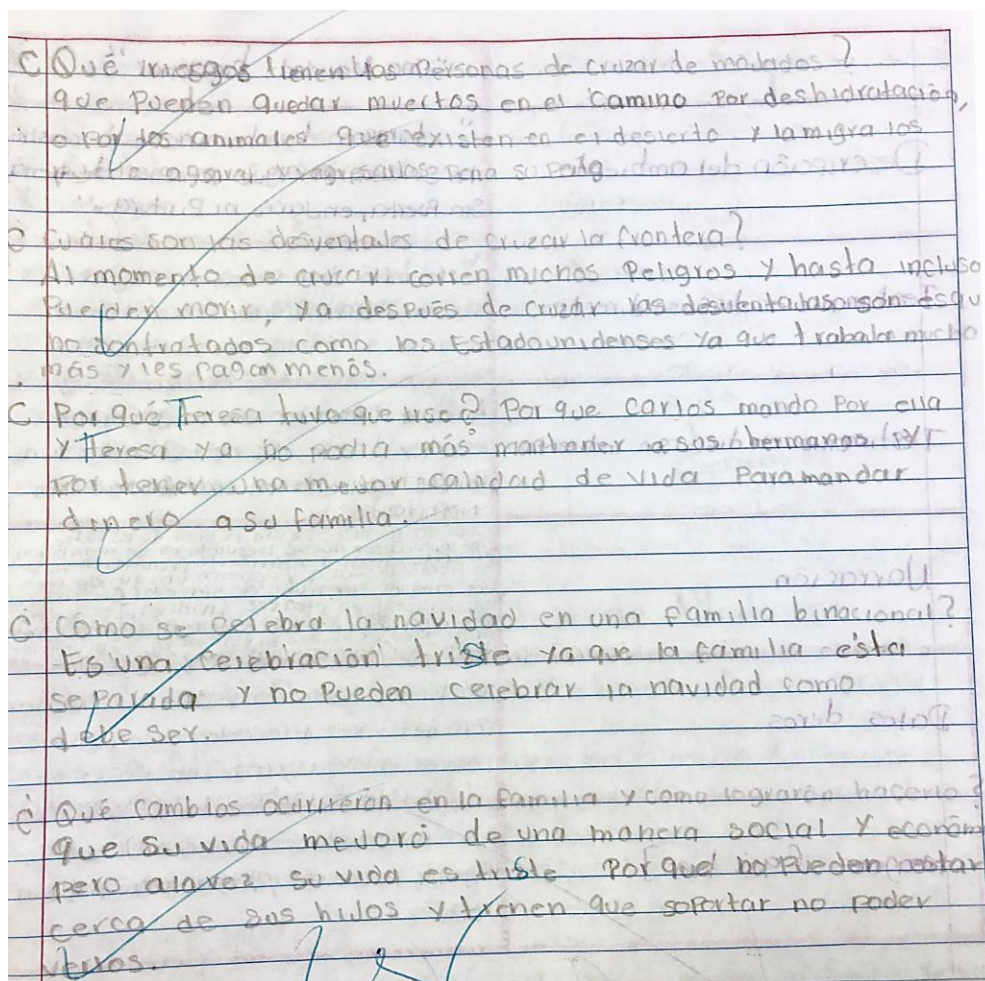 ¿Qué riesgos tienen las personas de cruzar de mojados?
que pueden quedar muertos en el camino por deshidratación,
o por los animales que existen en el desierto y la migra los
agarrar y regresarlos para su
¿Cuáles son las desventajas de cruzar la frontera?
Al momento de cruzar corren muchos peligros y hasta incluso
pueden morir, ya después de cruzar las desventajas son es qu
no contratados como los Estadounidenses ya que trabajan mucho
más y les pagan menos.
¿Por qué Teresa tuvo que irse? Por que Carlos mando por ella
y Teresa ya no podia más mantener a sus hermanos
por tener una mejor calidad de vida Para mandar
dinero a su familia.
¿Como se celebra la navidad en una familia binacional?
Es una celebración triste ya que la familia esta
separada y no pueden celebrar la navidad como
debe ser.
¿Qué cambios ocurrieron en la familia y como lograron hacerlo?
que su vida mejoró de una manera social y económ
pero a la vez su vida es triste Por que no pueden estar
cerca de sus hijos y tienen que soportar no poder
verlos.